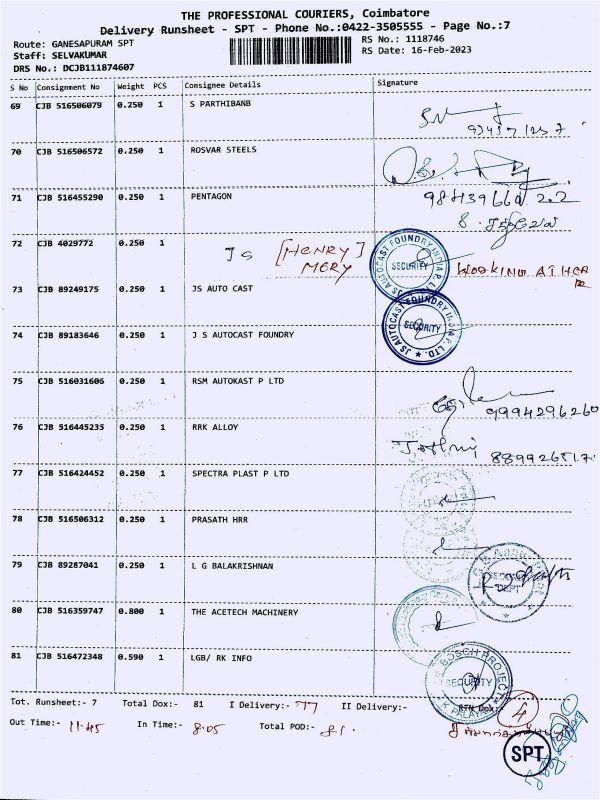 THE PROFESSIONAL COURIERS, Coimbatore
Delivery Runsheet - SPT - Phone No.:0422-3505555 - Page No.:7
Route: GANESAPURAM SPT
RS No.: 1118746
Staff: SELVAKUMAR
RS Date: 16-Feb-2023
DRS No.: DCJB111874607
S No Consignment No Weight PCS Consignee Details Signature
69 CJB 516506079 0.250 1 S PARTHIBANB
70 CJB 516506572 0.250 1 ROSVAR STEELS
71 CJB 516455290 0.250 1 PENTAGON
72 CJB 4029772 0.250 1 JS [HENRY] MERY
JS AUTOCAST FOUNDRY INDIA P. LTD. SECURITY
WORKING AT HCA
73 CJB 89249175 0.250 1 JS AUTO CAST
74 CJB 89183646 0.250 1 J S AUTOCAST FOUNDRY
JS AUTOCAST FOUNDRY INDIA P. LTD. SECURITY
75 CJB 516031606 0.250 1 RSM AUTOKAST P LTD
9994296260
76 CJB 516445235 0.250 1 RRK ALLOY
77 CJB 516424452 0.250 1 SPECTRA PLAST P LTD
78 CJB 516506312 0.250 1 PRASATH HRR
79 CJB 89287041 0.250 1 L G BALAKRISHNAN
DEPT
80 CJB 516359747 0.800 1 THE ACETECH MACHINERY
81 CJB 516472348 0.590 1 LGB/ RK INFO
BOSCH PROJECT SECURITY
Tot. Runsheet:- 7 Total Dox:- 81 I Delivery:- 77 II Delivery:- RTN Dox:- 4
Out Time:- 11.45 In Time:- 8.05 Total POD:- 81.
SPT